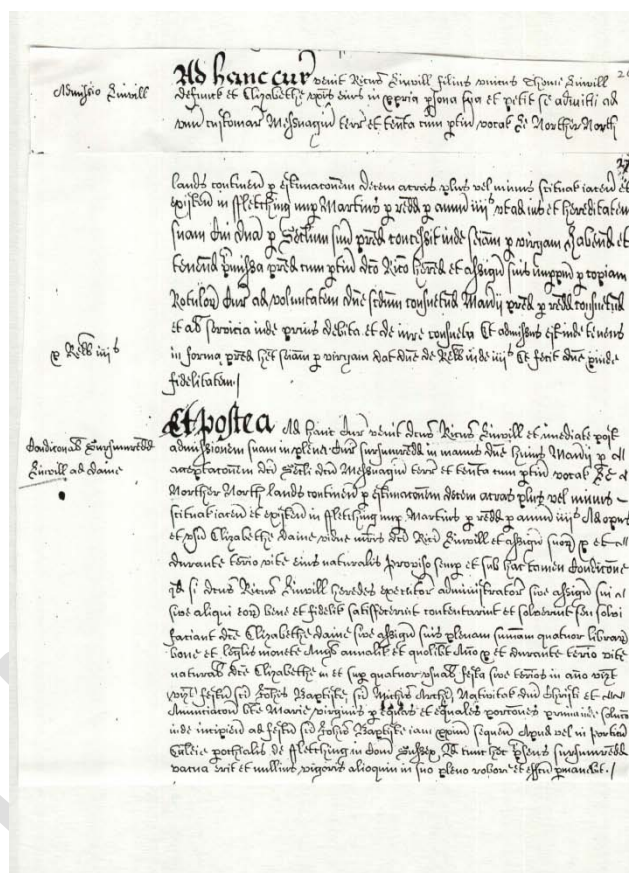 Admissio Linvill
Ad hanc Cur venit Ricus Linvill filius unicus Thome Linvill
defunct et Elizabethe uxis eius in ppria psona sua et petit se admitti ad
unu customar Messuagiu terr et tenta cum ptin vocat Le Norther North
27
lands continen p estimaconem decem acras plus vel minus scituat iacen et
existen in ffletching nup Martins p redd p annu iiijs ut ad ius et hereditatem
suam Cui Dna p Senllum suu pred concessit inde seiam p virgam Habend et
tenend pmissa pred cum ptin dco Rico hered et assign suis imppm p copiam
Rotulor Cur ad voluntatem dne scdum consuetud Manii pred p redd consuetud
et al servicia inde prius debita et de iure consueta Et admissus est inde tenens
p Rell iiijs
in forma pred het seiam p virgam dat dne de Rell inde iiijs Et fecit dne pinde
fidelitatem
Et postea Ad hanc Cur venit dcus Ricus Linvill et imediate post
Condiconal Sursumredd
admissionem suam in plena Cur sursumredd in manus dne huius Manii p
Linvill ad daine
acceptaconem dci Senlli dcu Messuagiu terr et tenta cum ptin vocat Le
Norther North lands continen p estimaconem decem acras plus vel minus
scituat iacen et existen in ffletching nup Martins p redd p annu iiijs Ad opus
et usu Elizabethe daine vidue mris dci Rici Linvill et assign suor p et
durante termo vite eius naturalis Proviso semp et sub hac tamen Condicone
qd si dcus Ricus Linvill heredes executor administrator sive assign sui
sive aliqui eor bene et fidelit satisfecerint contentarint et solverint seu solvi
faciant dce Elizabethe daine sive assign suis plenam summam quatuor librar
bone et legalis monete Anglie annualit et quolibt Anno p et durante termo vite
naturalis dce Elizabethe in et sup quatuor usual festa sive termos in anno vizt
festu sci Johis Baptiste, sci Michis Archi, Nativitat dni Christi et
Annunciacon bte Marie virginis p equas et equales porcones prima inde soluco
inde incipien ad festu sci Johis Baptiste iam pxim sequen Apud vel in porticu
Ecclie pochialis de ffletching in Com Sussex, Qd tunc hec psens sursumredd
vacua erit et nullius vigoris alioquin in suo pleno robore et effcu pmanebit